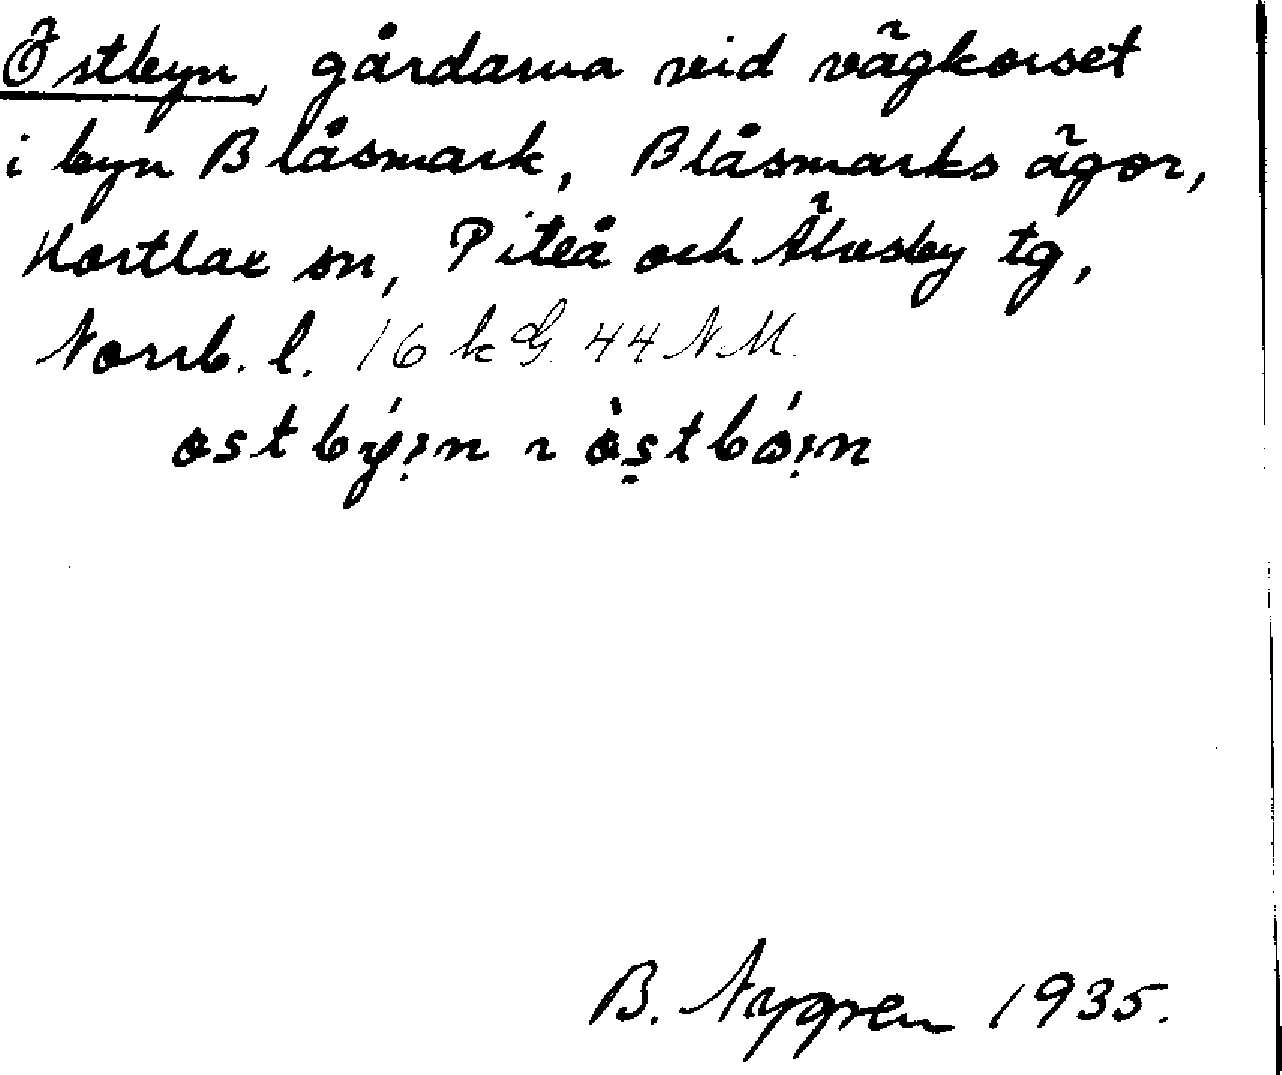 Östbyn, gårdarna vid vägkorset
i byn Blåsmark, Blåsmarks ägor,
Hortlax sn, Piteå och Älvsby tg,
Norrb. l. 16 k G. 44 NM.
ostbý:n ~ òstbó:n
B. Nygren 1935.